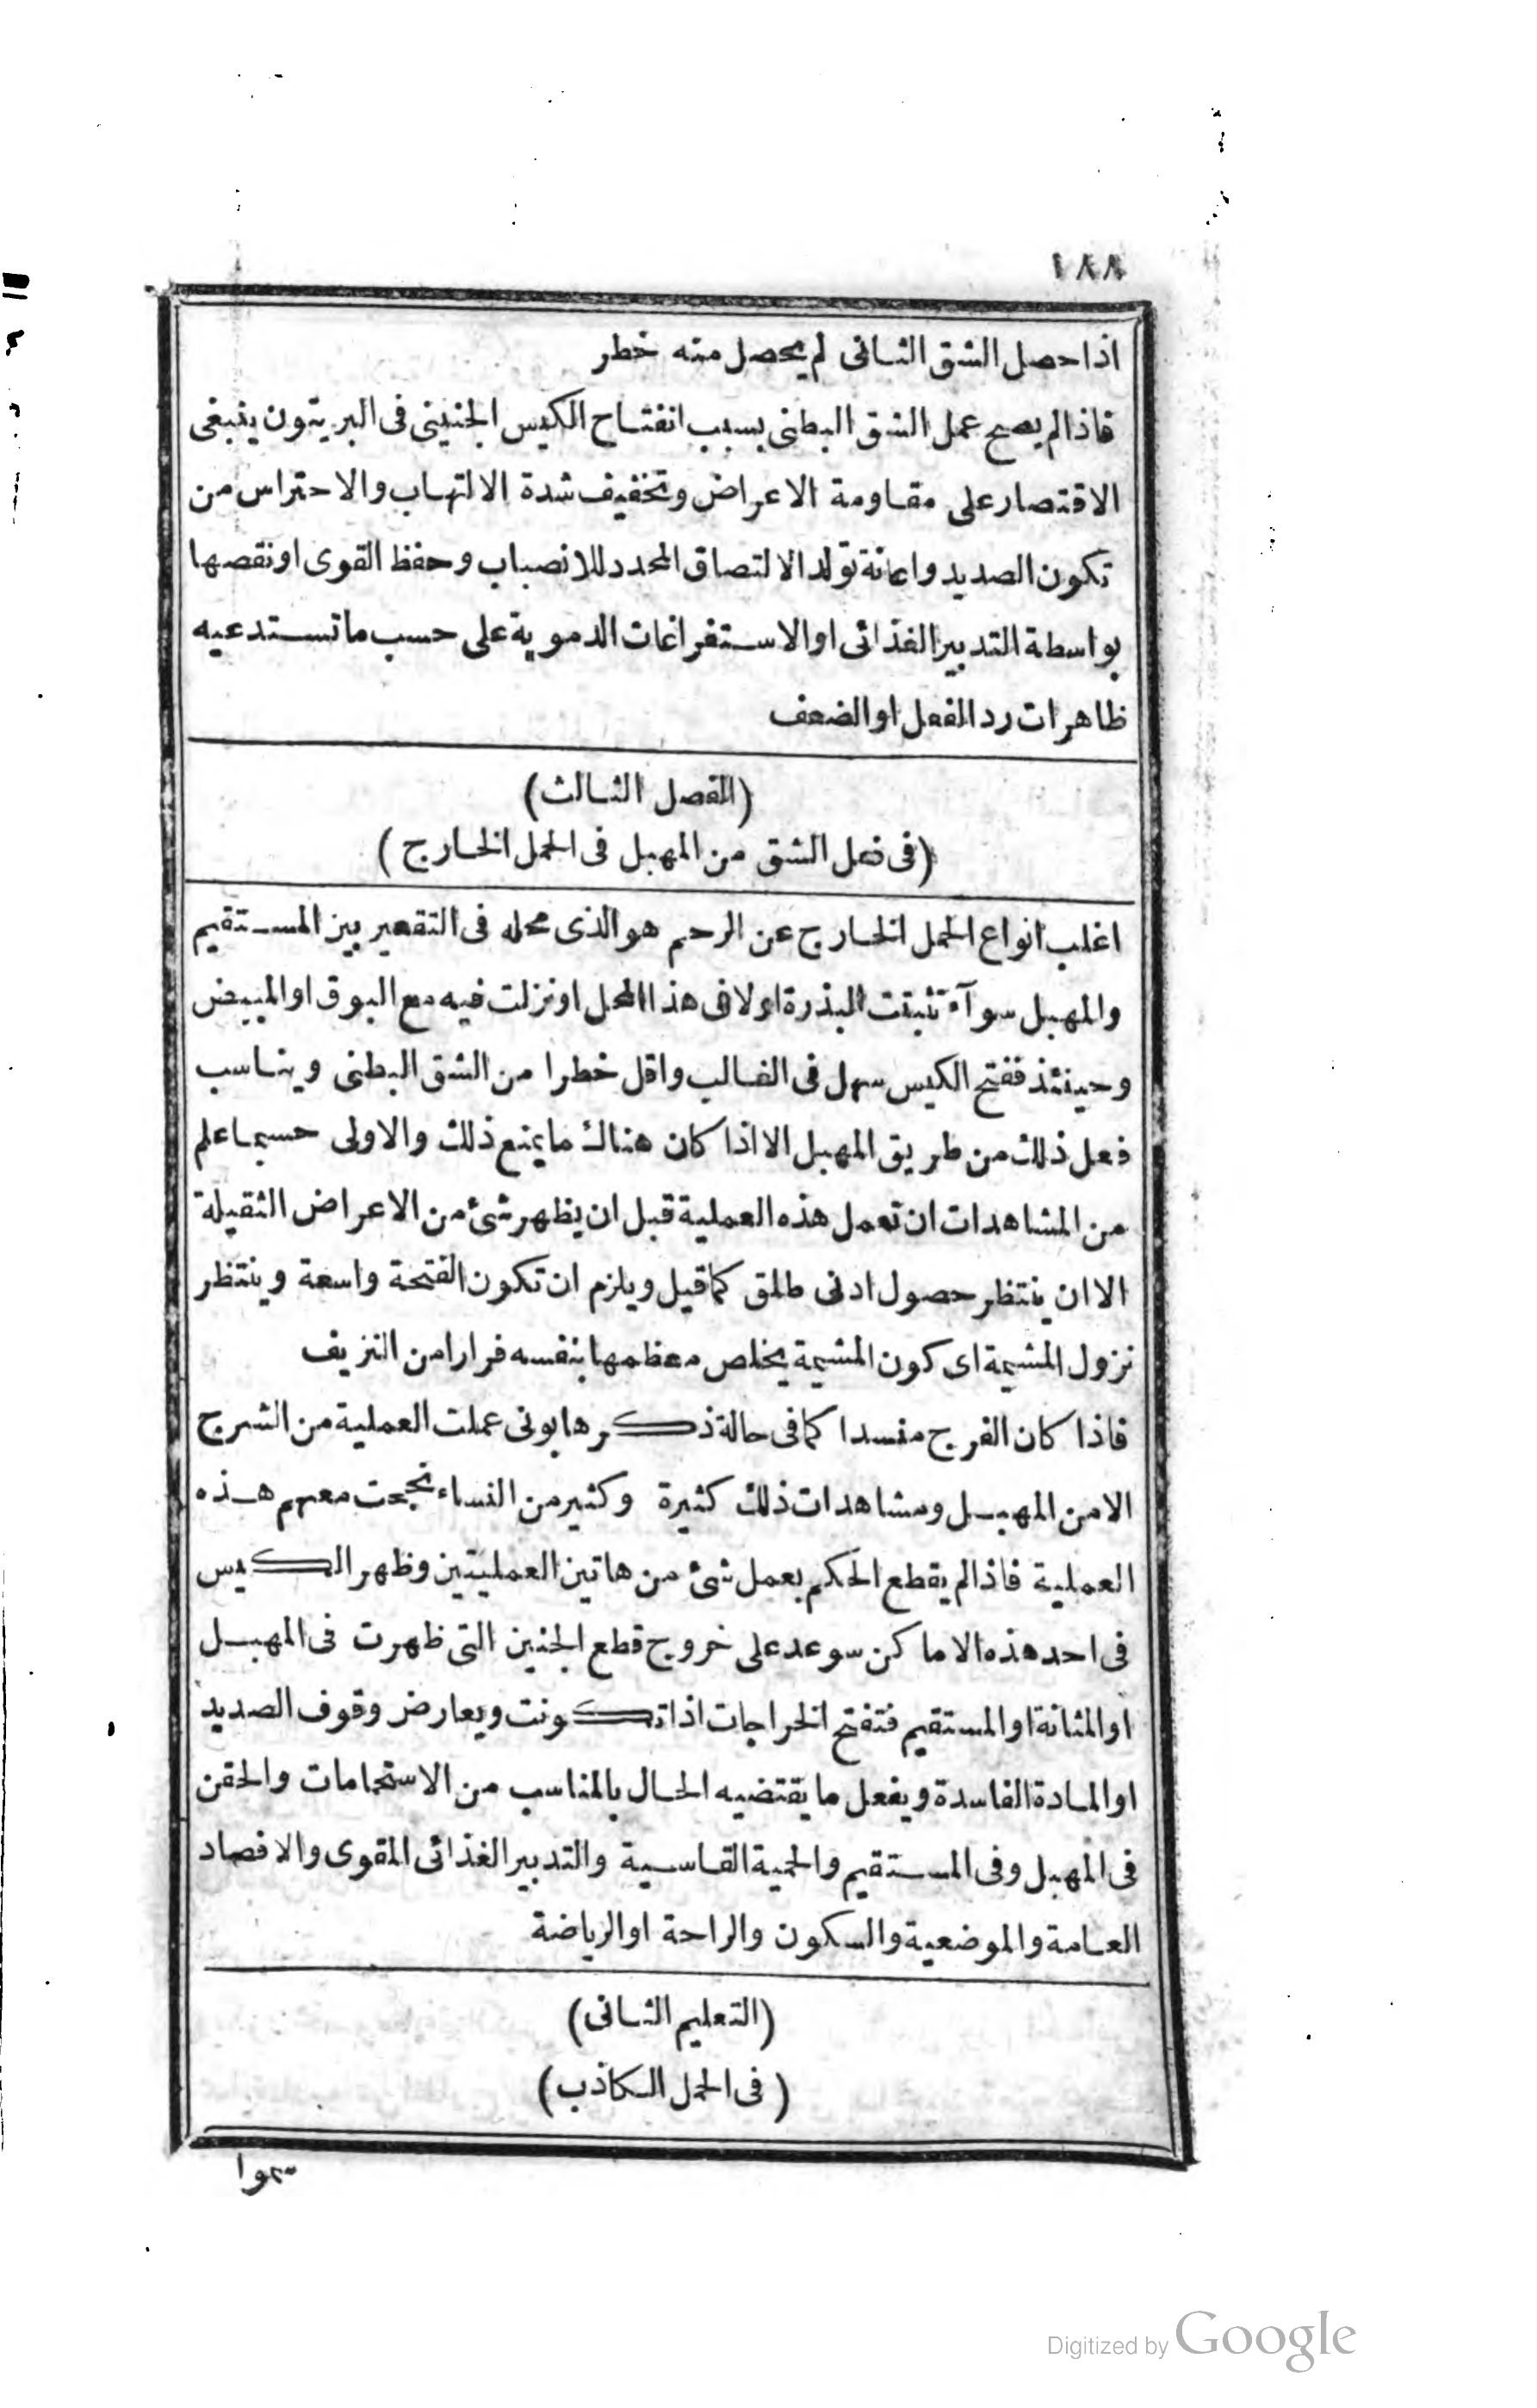 ١٨٨
اذا حصل الشق الثانى لم يحصل منه خطر
فاذا لم يصح عمل الشق البطنى بسبب انفتاح الكيس الجنينى فى البريتون ينبغى
الاقتصار على مقاومة الاعراض وتخفيف شدة الالتهاب والاحتراس من
تكون الصديد واعانة تولد الالتصاق المحدد للانصباب وحفظ القوى او نقصها
بواسطة التدبير الغذائى او الاستفراغات الدموية على حسب ما تستدعيه
ظاهرات رد الفعل او الضعف
(الفصل الثالث)
(فى فعل الشق من المهبل فى الحمل الخارج)
اغلب انواع الحمل الخارج عن الرحم هو الذى محله فى التقعير بين المستقيم
والمهبل سوآء تثبتت البذرة اولا فى هذا المحل او نزلت فيه مع البوق او المبيض
وحينئذ ففتح الكيس سهل فى الغالب واقل خطرا من الشق البطنى ويناسب
فعل ذلك من طريق المهبل الا اذا كان هناك ما يمنع ذلك والاولى حسبما علم
من المشاهدات ان تعمل هذه العملية قبل ان يظهر شئ من الاعراض الثقيلة
الا ان ينتظر حصول ادنى طلق كما قيل ويلزم ان تكون الفتحة واسعة وينتظر
نزول المشيمة اى كون المشيمة يخلص معظمها بنفسه فرارا من النزيف
فاذا كان الفرج منسدا كما فى حالة ذكرها بونى عملت العملية من الشرج
لا من المهبل ومشاهدات ذلك كثيرة وكثير من النساء نجحت معهم هذه
العملية فاذا لم يقطع الحكم بعمل شئ من هاتين العمليتين وظهر الكيس
فى احد هذه الاماكن سوعد على خروج قطع الجنين التى ظهرت فى المهبل
او المثانة او المستقيم فتفتح الخراجات اذا تكونت ويعارض وقوف الصديد
او المادة الفاسدة ويفعل ما يقتضيه الحال بالمناسب من الاستحمامات والحقن
فى المهبل وفى المستقيم والحمية القاسية والتدبير الغذائى المقوى والافصاد
العامة والموضعية والسكون والراحة او الرياضة
(التعليم الثانى)
(فى الحمل الكاذب)
سموا
Digitized by Google